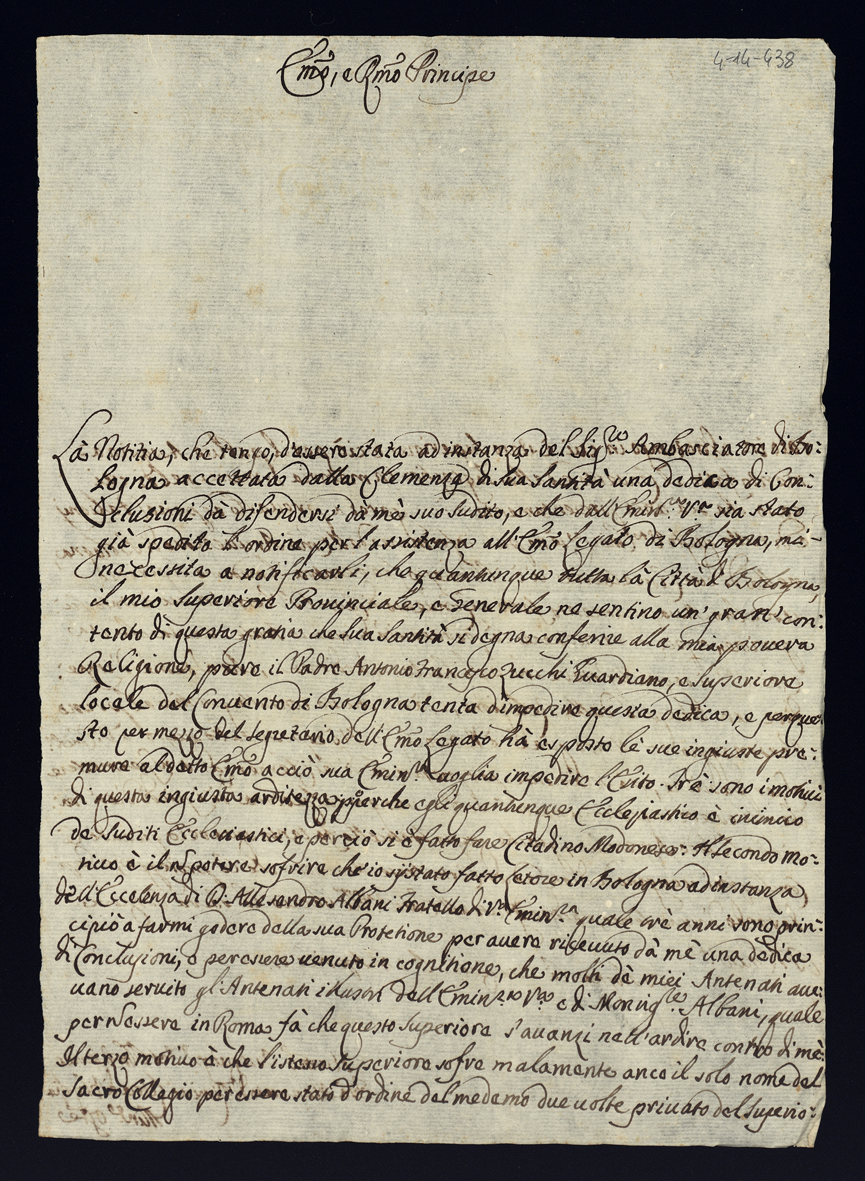 4-14-438
Emo, e Rmo Principe
La Notitia, che tengo, d'essere stata ad instanza del Sigre Ambasciatore di Bo:
logna accettata dalla Clemenza di sua Santità una dedica di Con:
clusioni da difendersi da mè suo Sudito, e che dall'Eminza Vra sia stato
già spedito l'ordine per l'assistenza all'Emo Legato di Bologna, mi
necessita a notificarli, che quantunque tutta la Città di Bologna,
il mio Superiore Provinciale, e Generale ne sentino un' gran' con:
tento di questa gratia che sua Santità si degna conferire alla mia povera
Religione, pure il Padre Antonio Francesco Zucchi Guardiano, e Superiore
locale del Convento di Bologna tenta d'impedire questa dedica, e per que
sto per mezzo del Segretario dell'Emo Legato hà esposto le sue ingiuste pre:
mure al detto Emo acciò sua Eminza voglia impedire l'Esito. Trè sono i motivi
di questa ingiusta arditezza perche egli quantunque Ecclesiastico è inimico
de Suditi Ecclesiastici, e perciò si è fatto fare Citadino Modonese: Il secondo mo:
tivo è il nõ potere sofrire che io sij stato fatto Letore in Bologna ad instanza
dell'Eccelenza di D. Allesandro Albani Fratello di Vra Eminza quale trè anni sono prin:
cipiò a farmi godere della sua Protetione per avere ricevuto dà mè una dedica
di Conclusioni, e per essere venuto in cognitione, che molti dè miei Antenati ave:
vano servito gl'Antenati illustri dell'Eminza Vra e di Monsigre Albani, quale
per nõ essere in Roma fà che questo Superiore s'avanzi nell'ardire contro di mè:
Il terzo motivo è che l'istesso Superiore sofre malamente anco il solo nome del
Sacro Collegio per essere stato d'ordine del medemo due volte privato del Superio: